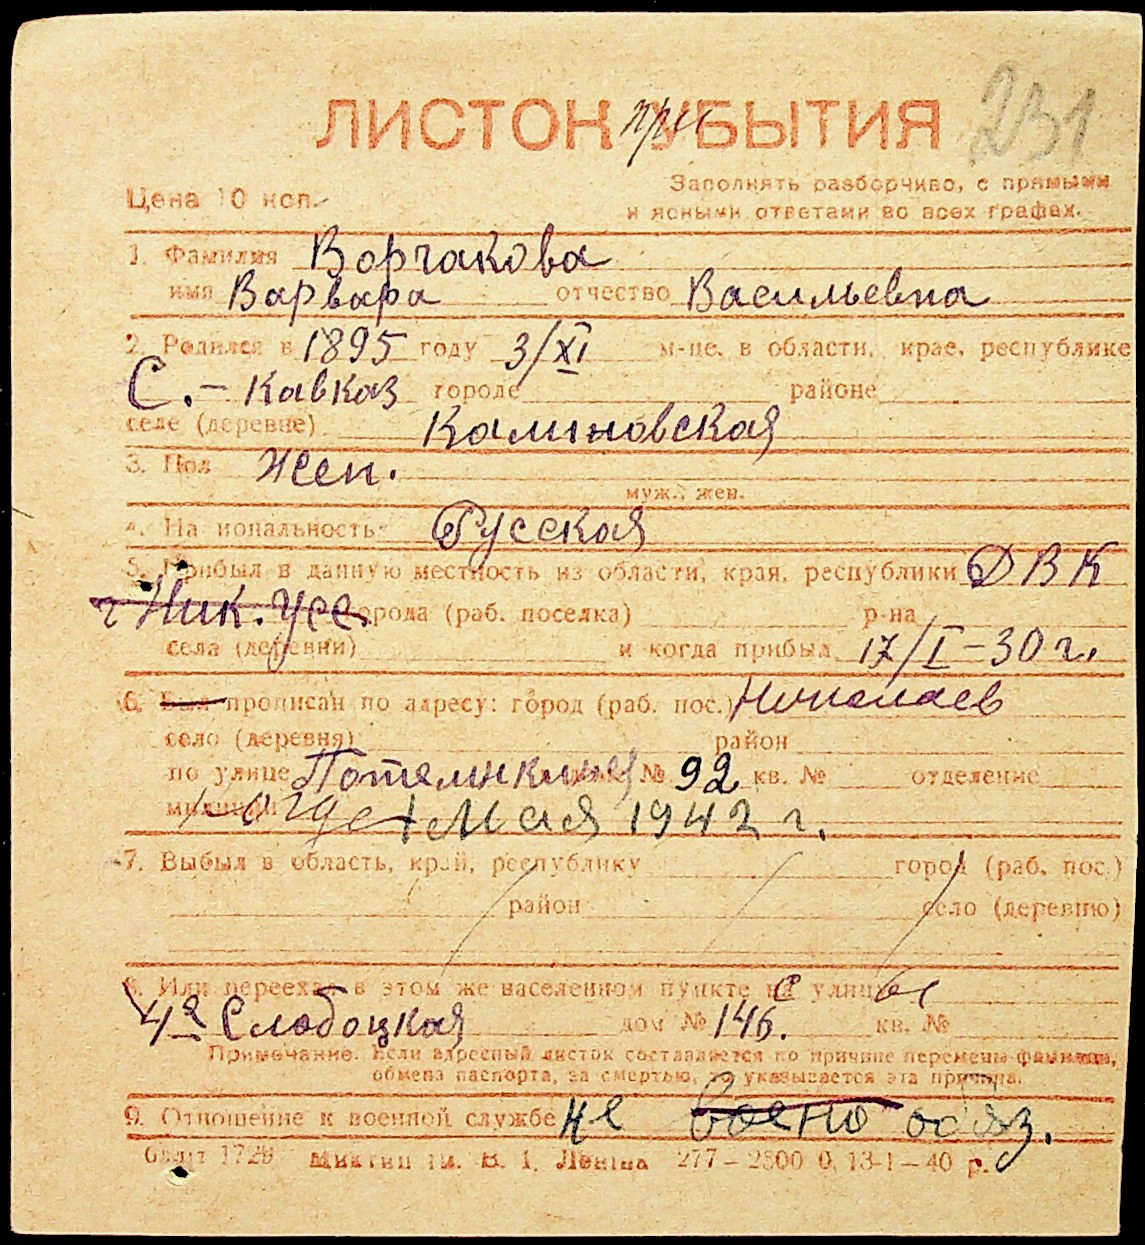 231
ЛИСТОК при УБЫТИЯ
Цена 10 коп.
Заполнять разборчиво, с прямыми
и ясными ответами во всех графах.
1. Фамилия Ворчакова
имя Варвара отчество Васильевна
2. Родился в 1895 году 3/XI м-це, в области, крае, республике
С.-Кавказ городе районе
селе (деревне) Калиновская
3. Пол жен.
муж., жен.
4. Национальность Русская
5. Прибыл в данную местность из области, края, республики ДВК
г Ник. Усс. города (раб. поселка) р-на
села (деревни) и когда прибыл 17/I-30 г.
6. Был прописан по адресу: город (раб. пос.) Николаев
село (деревня) район
по улице Потемкинся № 92 кв. № отделение
милиции когда 1 мая 1942 г.
7. Выбыл в область, край, республику город (раб. пос.)
район село (деревню)
8. Или переехал в этом же населенном пункте на с улицы
4я Слободская дом № 146. кв. №
Примечание. Если адресный листок составляется по причине перемены фамилии,
обмена паспорта, за смертью, то указывается эта причина.
9. Отношение к военной службе не военно обяз.
1729 В. І. Леніна 277-2500 0, 13-1-40 р.